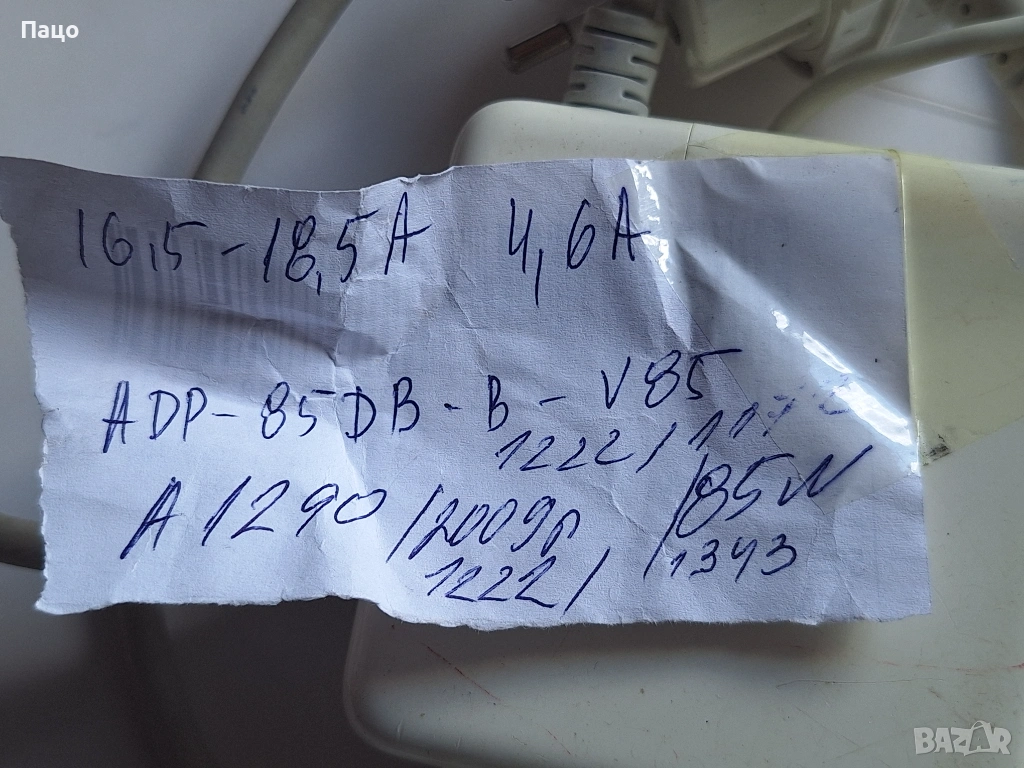 Пацо
16,5-18,5A 4,6A
ADP-85DB-B-V85
1222/
A1290/2009г /85W
1222/ /1343
BAZAR